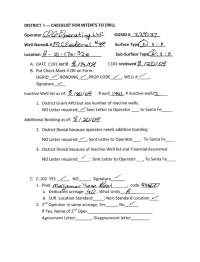 DISTRICT I — CHECKLIST FOR INTENTS TO DRILL
Operator COG Operating LLC OGRID # 229137
Well Name& # MC Federal Surface Type F S - P
Location 8 - 21 - 17S - 32e Sub-Surface Type F S - P
A. DATE C101 rec'd C101 reviewed
B. Put Check Mark √ OK on Form:
OGRID ✓, BONDING ✓, PROP CODE ✓, WELL # ✓,
Signature ✓
Inactive Well list as of: # well Inactive wells
1. District Grant APD but see number of inactive wells:
NO Letter required ✓; Sent Letter to Operator ___, to Santa Fe ___
Additional Bonding as of:
2. District Denial because operator needs addition bonding:
NO Letter required ✓; Sent Letter to Operator ___, To Santa Fe ___
3. District Denial because of Inactive Well list and Financial Assurance:
NO Letter required ✓; Sent Letter to Operator ___, To Santa Fe ___
C. C-102 YES ✓, NO ___, Signature ✓
1. Pool Maljamar Yeso West, code
a. Dedicated acreage 40, What Units
B. SUR. Location Standard ✓; Non-Standard Location
2. 2nd Operator in same acreage, Yes ___, No ✓
If Yes, Name of 2nd Oper.
Agreement Letter ___, Disagreement letter ___